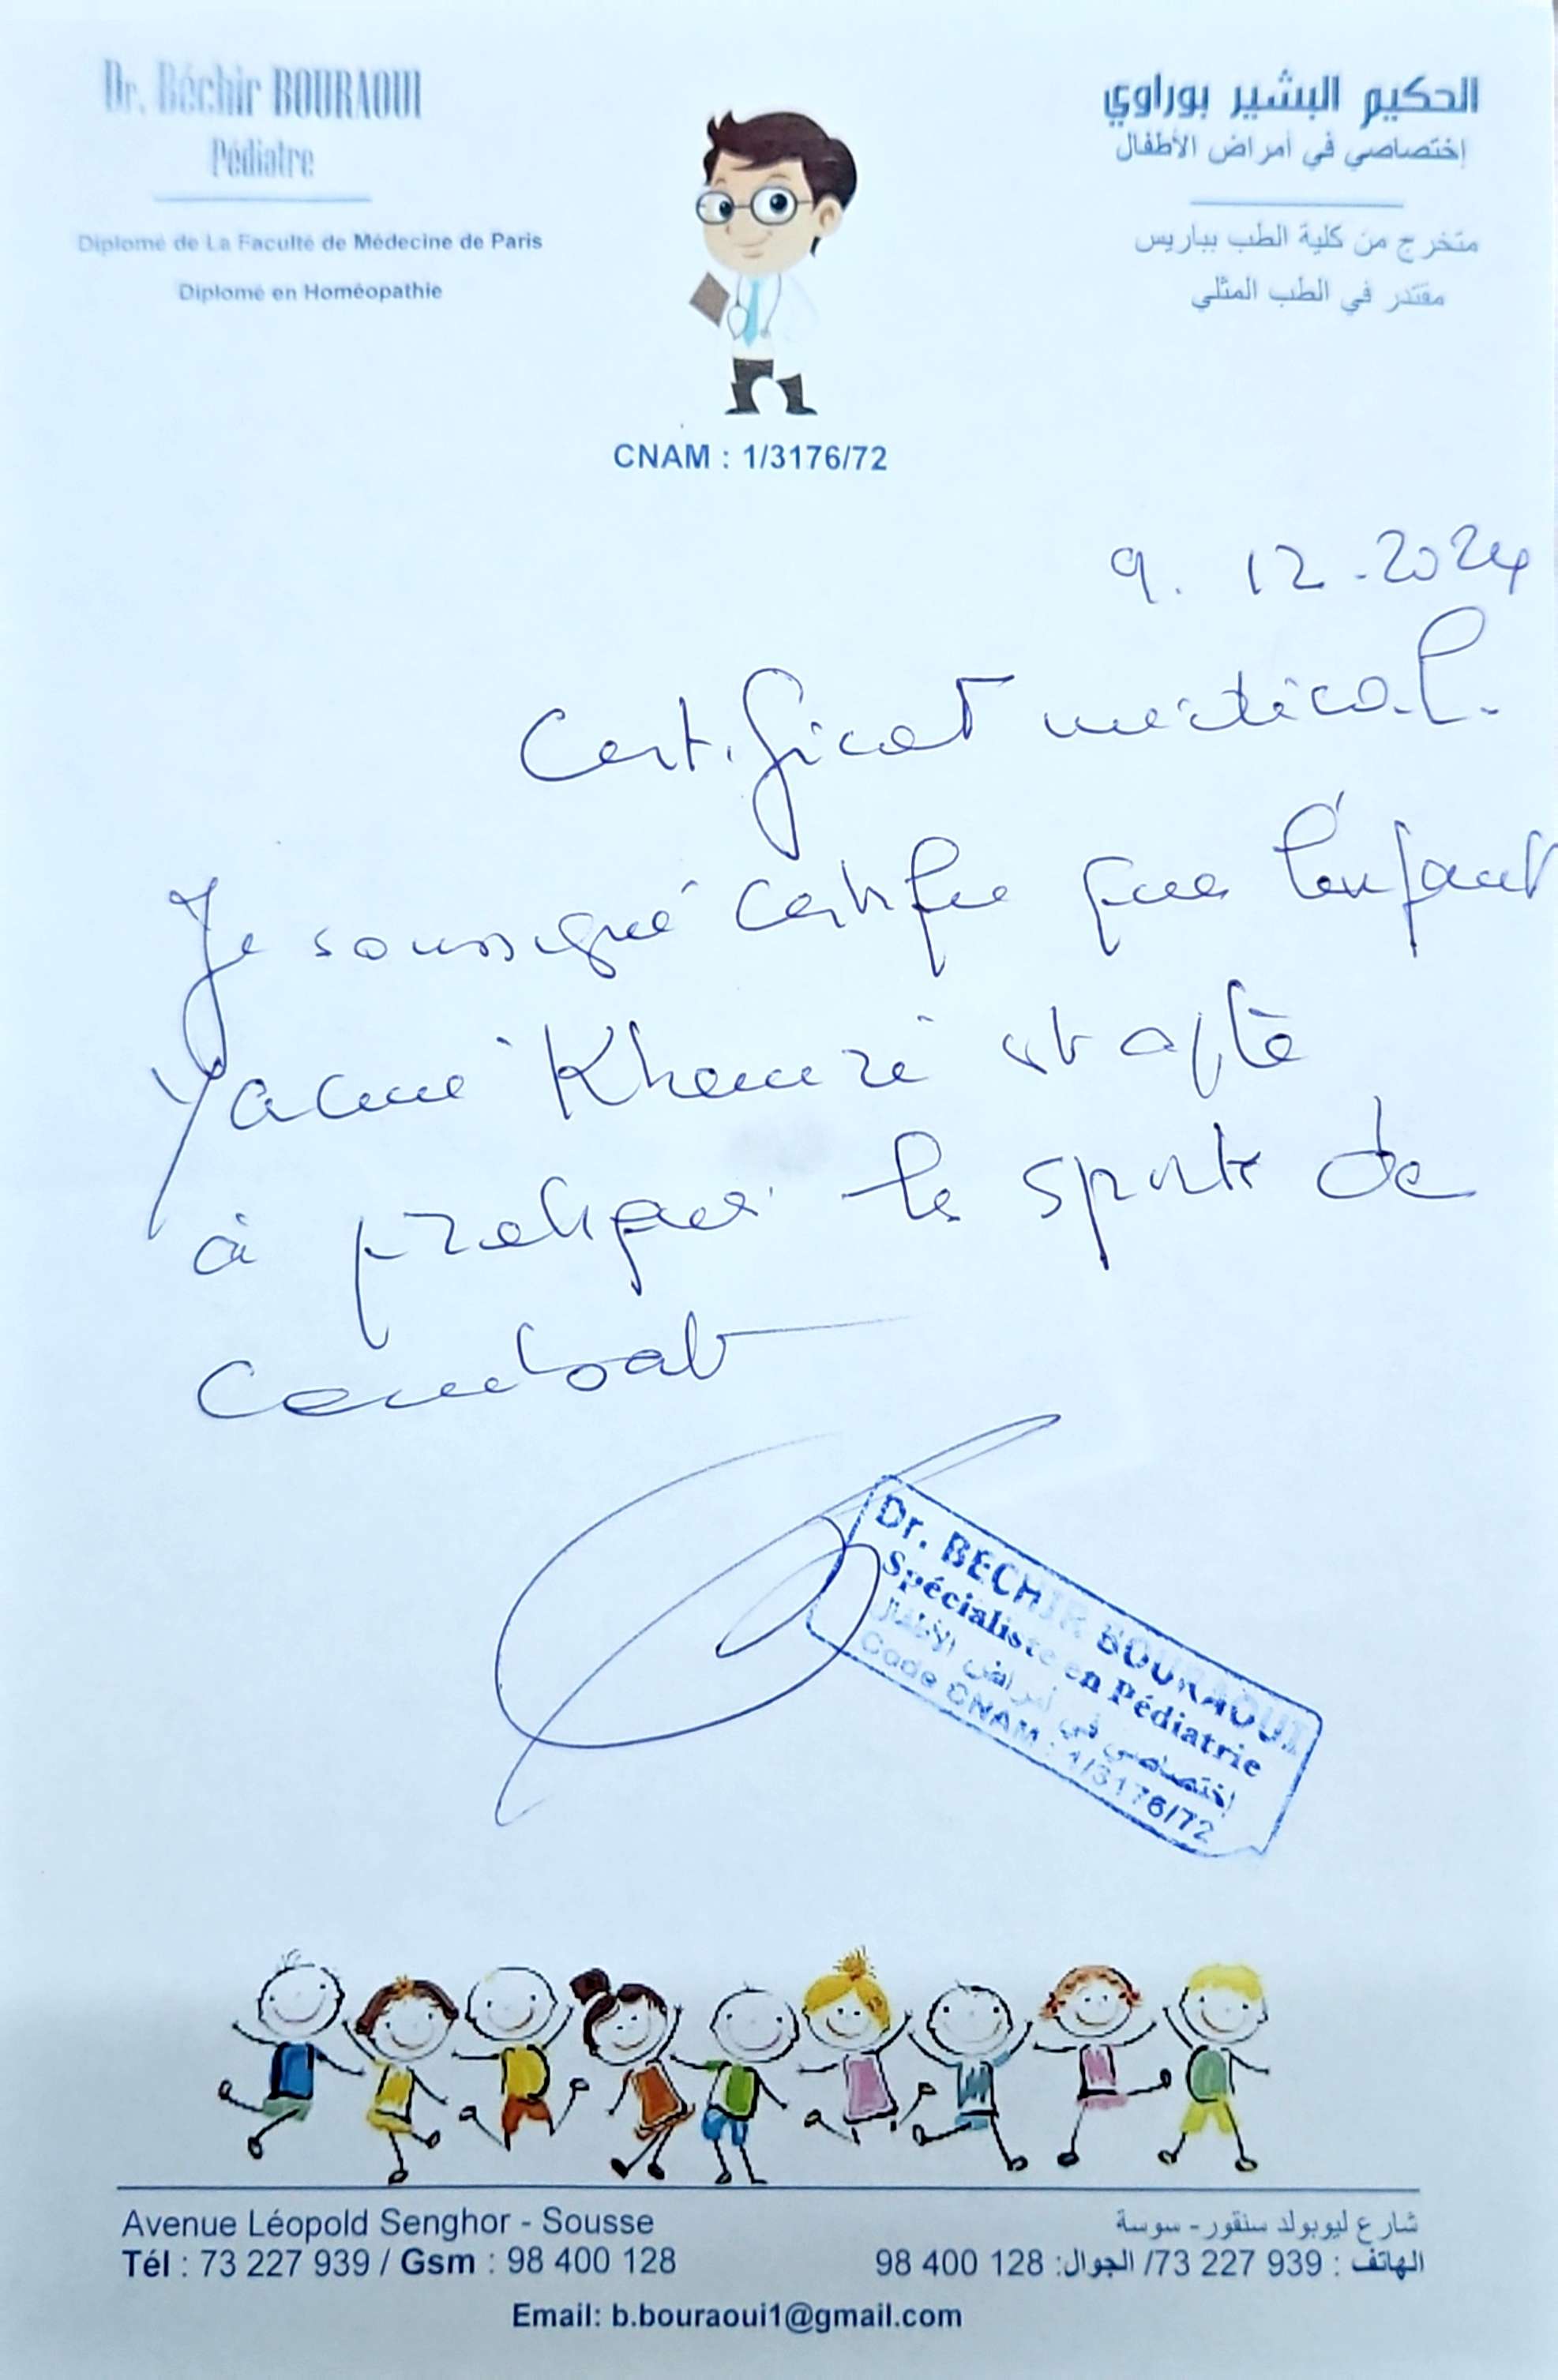 Dr. Béchir BOURAOUI
Pédiatre
Diplomé de La Faculté de Médecine de Paris
Diplomé en Homéopathie
الحكيم البشير بوراوي
إختصاصي في أمراض الأطفال
متخرج من كلية الطب بباريس
مقتدر في الطب المثلي
CNAM : 1/3176/72
9. 12.2024
Certificat médical.
Je soussigné certifie que l'enfant
Khemiri est apte
à pratiquer le sport de
combat
Dr. BECHIR BOURAOUI
Spécialiste en Pédiatrie
إختصاصي في أمراض الأطفال
Code CNAM : 1/3176/72
Avenue Léopold Senghor - Sousse
Tél : 73 227 939 / Gsm : 98 400 128
شارع ليوبولد سنقور- سوسة
الهاتف : 939 227 73/ الجوال: 128 400 98
Email: b.bouraoui1@gmail.com